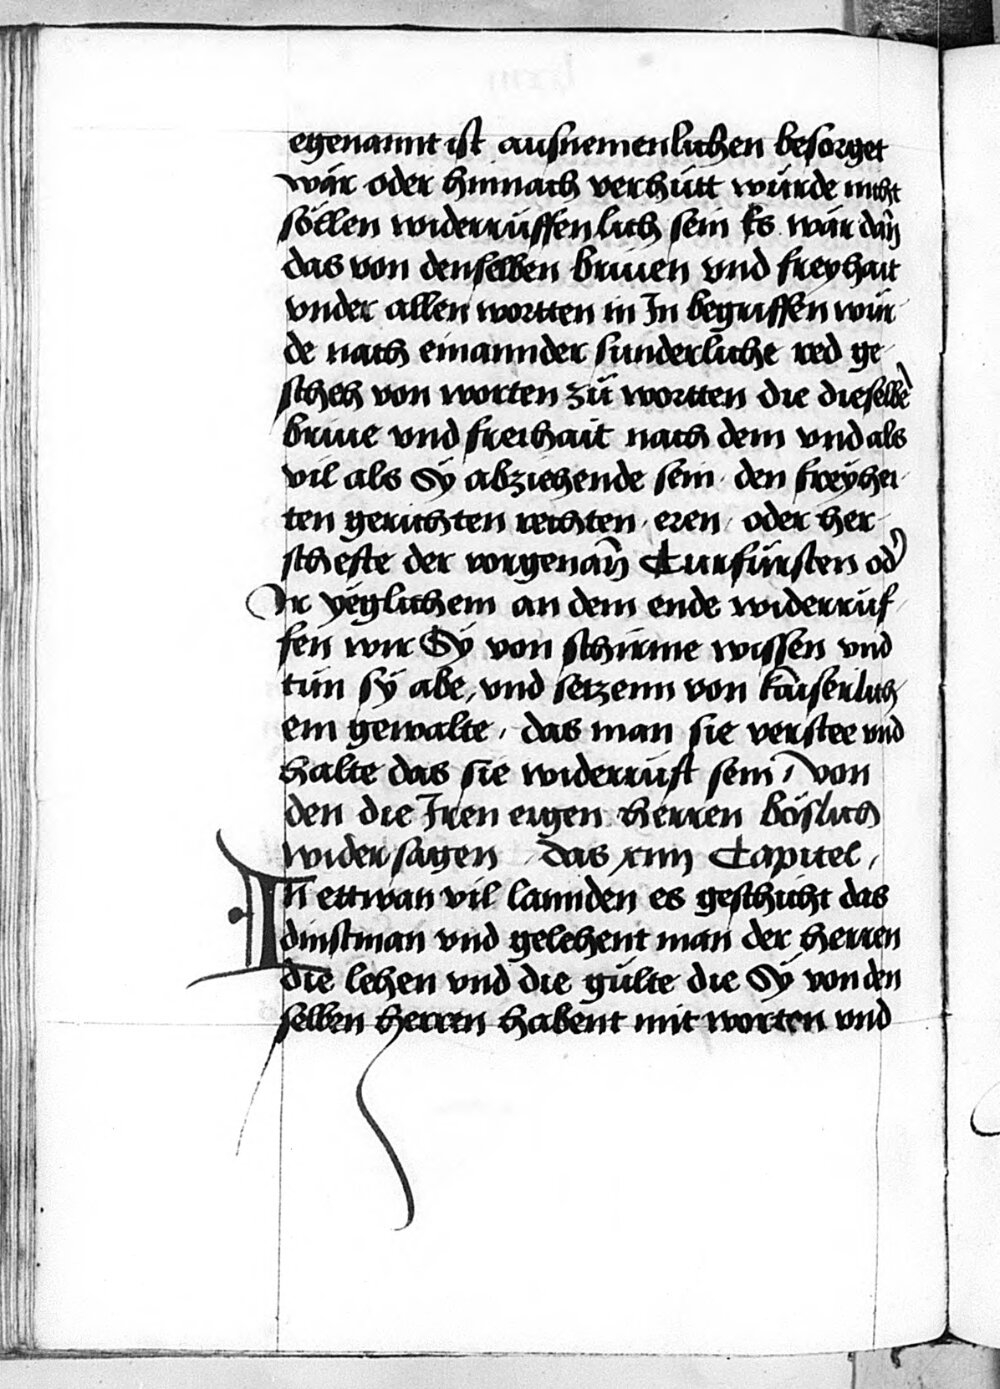 egenannt ist ausnemenlichen besorget
wär oder hinnach verhütt würde nicht
söllen widerrüffenlich sein Es wär dañ
das von denselben brieuen vnd freyhait
vnder allen wortten in In begriffen wür
de nach einannder sunderliche red ge
scheh von worten zü wortten die dieselbē
briue vnd freihait nach dem vnd als
vil als Sy abziehende sein den freÿhei
ten gerichten rechten eren oder her
schefte der vorgenañ Curfürsten od'
Ir yeglichem an dem ende widerrüf
fen wir Sÿ von schirme wissen vnd
tün sÿ abe, vnd setzenn von kaiserlich
em gewalte, das man sie verstee vnd
halte das sie widerrüft sein, von
den die Iren eigen herren böslich
widersagen das xiiij Capitel,
In ettwan vil lannden es geschicht das
dinstman vnd gelehent man der herren
die lehen vnd die gülte die Sÿ von den
selben herren habent mit worten vnd